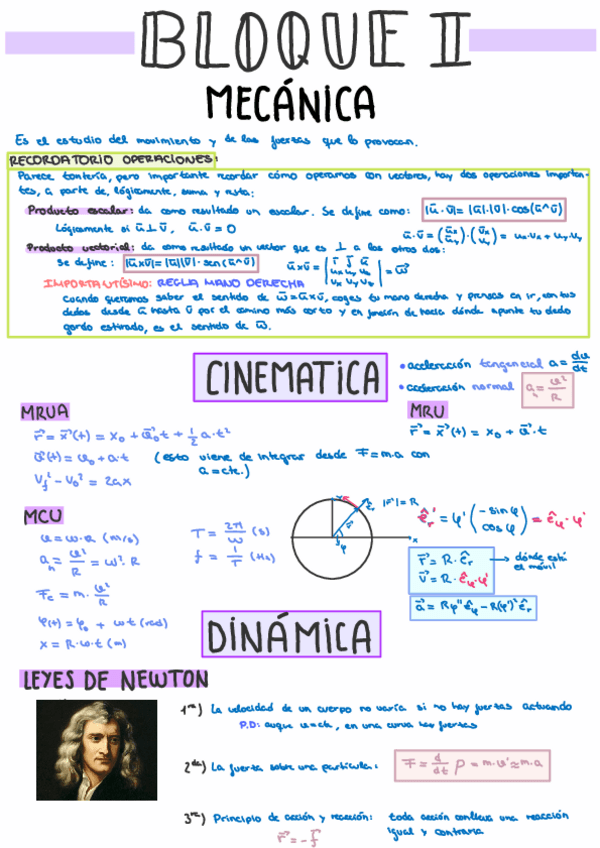 BLOQUE II
MECÁNICA
Es el estudio del movimiento y de las fuerzas que lo provocan.
RECORDATORIO OPERACIONES:
Parece tontería, pero importante recordar cómo operamos con vectores, hay dos operaciones importan-
tes, a parte de, lógicamente, suma y resta:
Producto escalar: da como resultado un escalar. Se define como: |ū·v̄|= |ū|·|v̄|·cos(ū^v̄)
Lógicamente si ū⊥v̄, ū·v̄ = 0
ū·v̄ = (ūx ūy)·(v̄x v̄y) = ux·vx + uy·vy
Producto vectorial: da como resultado un vector que es ⊥ a los otros dos:
Se define: |ūxv̄|=|ū||v̄|·sen(ū^v̄)
ūxv̄ = = w̄
IMPORTANTÍSIMO: REGLA MANO DERECHA
Cuando queremos saber el sentido de w̄=ūxv̄, coges tu mano derecha y piensas en ir, con tus
dedos desde ū hasta v̄ por el camino más corto y en función de hacia dónde apunte tu dedo
gordo estirado, es el sentido de w̄.
CINEMATICA
• aceleración tangencial a = dv/dt
• aceleración normal aₙ = v²/R
MRUA
r⃗ = x⃗(t) = x₀ + v⃗₀t + ½ a·t²
v⃗(t) = v₀ + a·t (esto viene de integrar desde F=m·a con
a=cte.)
Vf² - V₀² = 2ax
MRU
r⃗ = x⃗(t) = x₀ + v⃗·t
MCU
v = w·R (m/s)
aₙ = v²/R = w²·R
Fc = m·v²/R
φ(t) = φ₀ + wt (rad)
x = R·w·t (m)
T = 2π/w (s)
f = 1/T (Hz)
|r⃗| = R
x
φ
êr' = φ' (-sinφ cosφ) = êφ·φ'
r⃗ = R·êr → dónde está
el móvil
v⃗ = R·êφ·φ'
a⃗ = Rφ''êφ - R(φ')²êr
DINÁMICA
LEYES DE NEWTON
1ª) La velocidad de un cuerpo no varía si no hay fuerzas actuando
P.D: auque v=cte, en una curva hay fuerzas
2ª) La fuerza sobre una partícula: F = d/dt p = m·v' ≈ m·a
3ª) Principio de acción y reacción: toda acción conlleva una reacción
igual y contraria